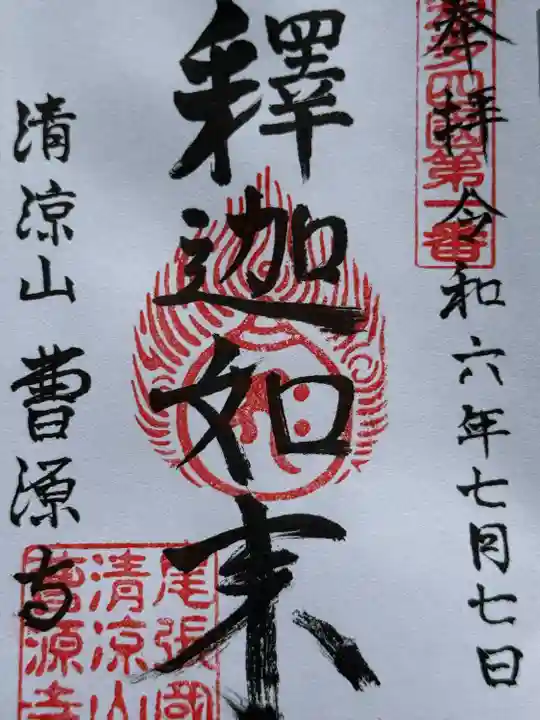 奉拝 令和六年七月七日
知多四國第一番
釋迦如来
清涼山 曹源寺
尾張國
清涼山
曹源寺